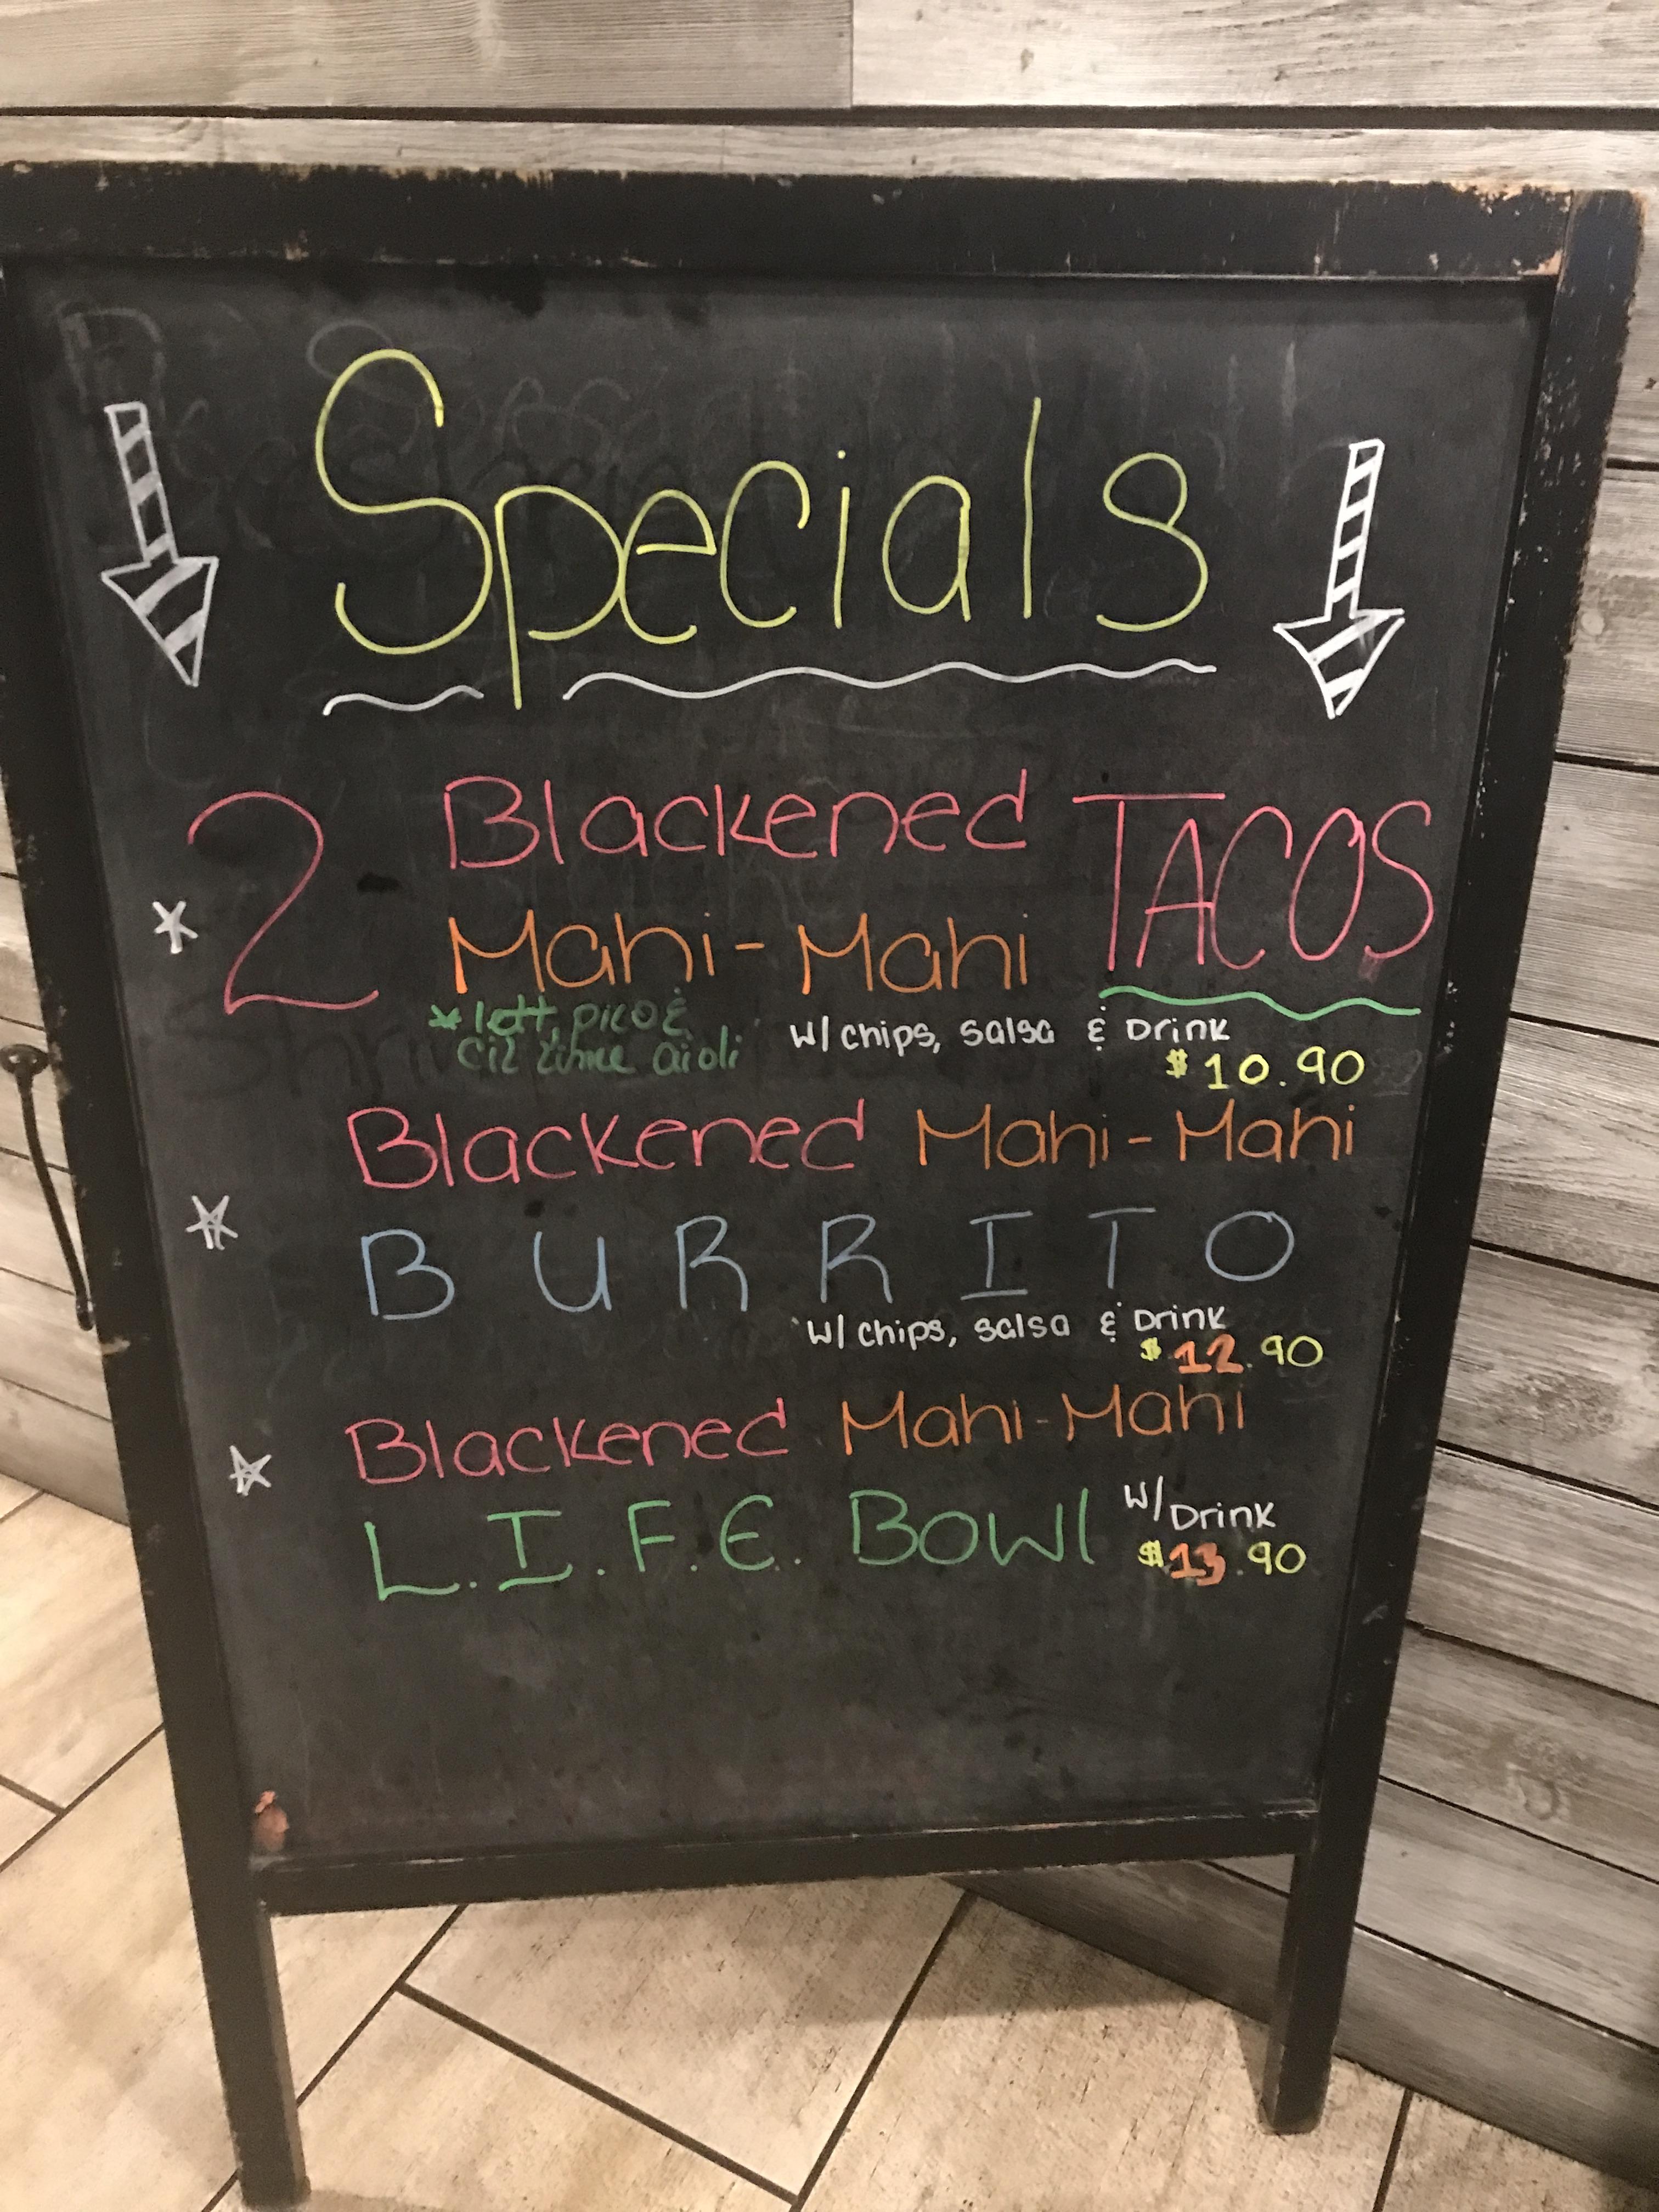 Specials
2 Blackened TACOS
Mahi-Mahi
* lett, pico &
cil lime aioli
w/ chips, salsa & Drink
$10.90
Blackened Mahi-Mahi
BURRITO
w/ chips, salsa & Drink
$12.90
Blackened Mahi-Mahi
L.I.F.E. Bowl
w/ Drink
$13.90